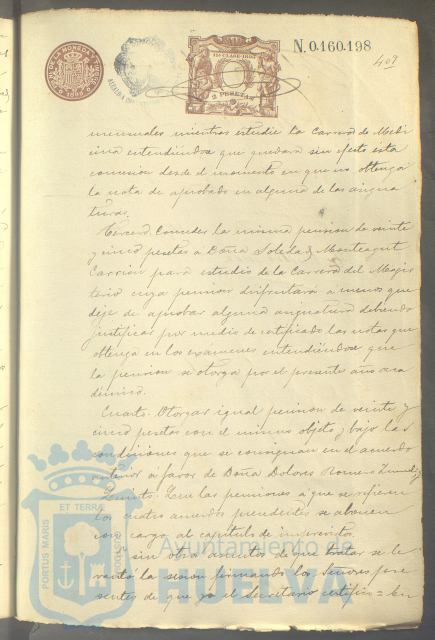 N. 0.160.198
409
11ª CLASE
2 PESETAS
mensuales mientras estudie la Carrera de Medi
cina entendiendose que quedará sin efecto esta
concesion desde el momento en que no obtenga
la nota de aprobado en alguna de las asigna
turas.
Tercero. Concedes la misma pension de veinte
y cinco pesetas á Doña Soledad Monteagut
Carrion para estudio de la Carrera del Magis
terio cuya pension disfrutará á menos que
deje de aprobar alguna asignatura debiendo
justificar por medio de certificado las notas que
obtenga en los examenes entendiendose que
la pension se otorga por el presente año aca
démico.
Cuarto. Otorgar igual pension de veinte y
cinco pesetas con el mismo objeto y bajo las
condiciones que se consignan en el acuerdo
anterior á favor de Doña Dolores Romero
Quinto. Que las pensiones á que se refieren
los cuatro acuerdos precedentes se abonen
con cargo al capitulo de imprevistos.
Y sin otros asuntos de que tratar se le
vantó la sesion firmando los Señores pre
sentes de que yo el Secretario certifico =
PORTUS MARIS
ET TERRÆ
CUSTODIA
Ayuntamiento de
HUELVA